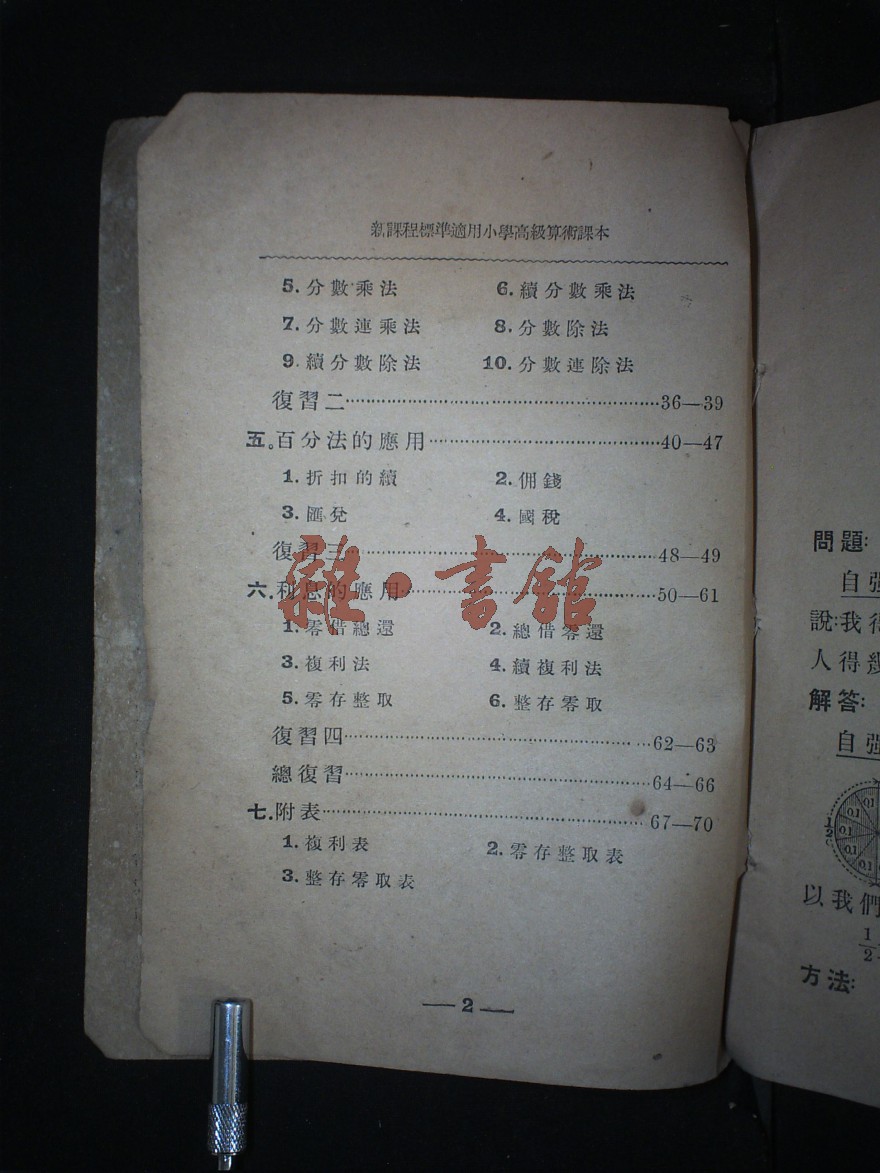 新課程標準適用小學高級算術課本
5. 分數乘法 6. 續分數乘法
7. 分數連乘法 8. 分數除法
9. 續分數除法 10. 分數連除法
復習二 36—39
五。百分法的應用 40—47
1. 折扣的續 2. 佣錢
3. 匯兌 4. 國稅
復習三 48—49
六. 利息的應用 50—61
1. 零借總還 2. 總借零還
3. 複利法 4. 續複利法
5. 零存整取 6. 整存零取
復習四 62—63
總復習 64—66
七. 附表 67—70
1. 複利表 2. 零存整取表
3. 整存零取表
—2—
雜·書館
問題:
自强
說:我得
人得幾
解答:
自强
以我們
方法: